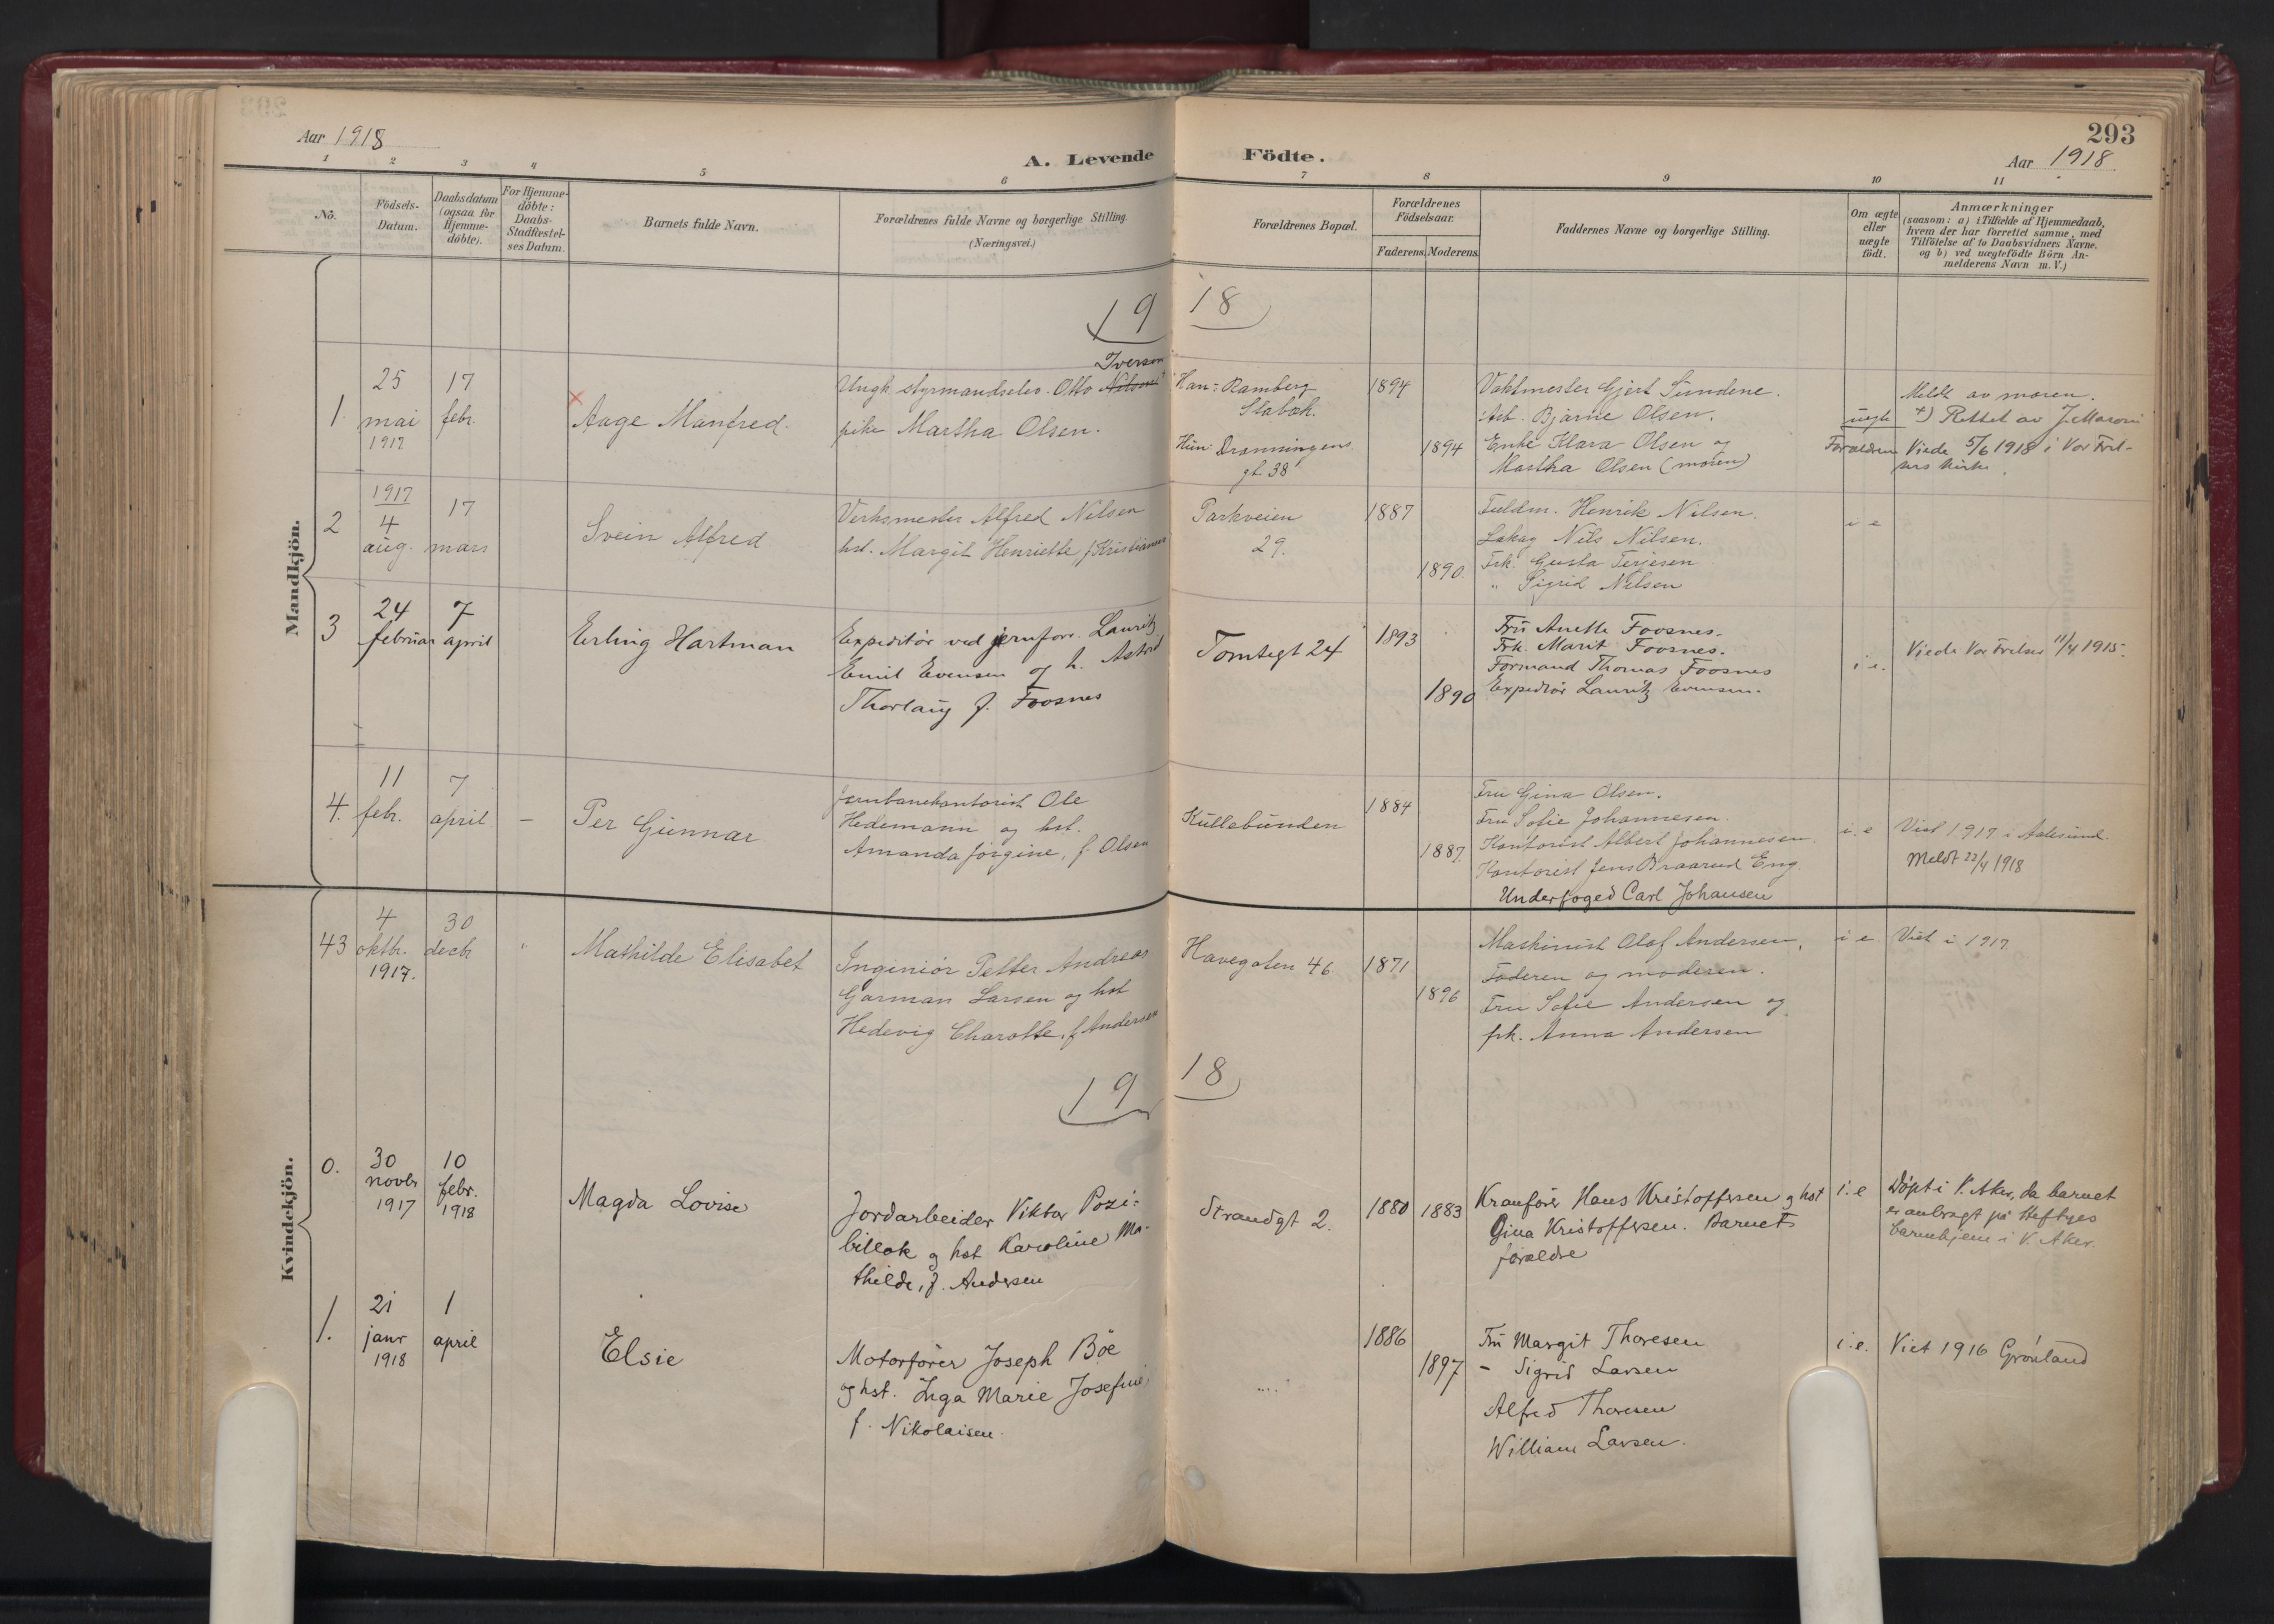 293
Aar 1918
A. Levende Födte.
Aar 1918
1 2 3 4 5 6 7 8 9 10 11
No.
Födsels-
Datum.
Daabsdatum
(ogsaa for
Hjemme-
döbte).
For Hjemme-
döbte:
Daabs-
Stadfæstel-
ses Datum.
Barnets fulde Navn.
Forældrenes fulde Navne og borgerlige Stilling.
(Næringsvei.)
Forældrenes Bopæl.
Forældrenes
Födselsaar.
Faderens. Moderens.
Faddernes Navne og borgerlige Stilling.
Om ægte
eller
uægte
födt.
Anmærkninger
(saasom: a) i Tilfælde af Hjemmedaab,
hvem der har forrettet samme, med
Tilföielse af to Daabsvidners Navne,
og b) ved uægtefödte Börn An-
melderens Navn m. V.)
Mandkjön.
19 18
1.
25
mai
1917
17
febr.
Aage Manfred.
Iversen
Ungk. styrmandselev. Otto Nilsen
pike Martha Olsen.
Han: Ramberg
Slabæk.
Hun: Dronningens
gt. 38
1894
1894
Vaktmester Gjert Sundene.
Arb. Bjarne Olsen.
Enke Klara Olsen og
Martha Olsen (moren)
uegte
Meldt av moren.
+) Rettet av J. Maroni
Forældrene Viede 5/6 1918 i Vor Frel-
sers kirke.
2
1917
4
aug.
17
mars
Svein Alfred
Verksmester Alfred Nilsen
hst. Margit Henriette, f. Kristiansen
Parkveien
29.
1887
1890.
Fuldm. Henrik Nilsen.
Nils Nilsen.
Frk. Gusta Terjesen
" Sigrid Nilsen
i e
3
24
februar
7
april
Erling Hartman
Expeditör ved jernforr. Lauritz
Emil Evensen og h. Astrid
Thorlaug f. Foosnes
Tomtegt 24
1893
1890
Fru Anette Foosnes.
Frk. Marit Foosnes.
Formand Thomas Foosnes
Expeditör Lauritz Evensen.
i. e.
Viede Vor Frelser 11/4 1915.
4.
11
febr.
7
april
–
Per Gunnar
Jernbanekontorist Ole
Hedemann og hst.
Amanda Jörgine, f. Olsen
Kullebunden
1884
1887.
Fru Gina Olsen.
Fru Sofie Johannesen.
Kontorist Albert Johannesen.
Kontorist Jens Braarud Eng.
Underfoged Carl Johansen
i. e
Viet 1917 i Aalesund.
Meldt 22/4 1918
Kvindekjön.
43
4
oktbr.
1917.
30
decbr
"
Mathilde Elisabet
Ingeniör Petter Andreas
Garman Larsen og hst
Hedevig Charotte, f. Andersen
Havegaten 46
1871
1896
Maskinist Olaf Andersen,
Faderen og moderen.
Fru Sofie Andersen og
frk. Anna Andersen
i e
Viet i 1917
19 18
0.
30
novbr
1917
10
febr.
1918
Magda Lovise
Jordarbeider Viktor Pozi-
billok og hst Karoline Ma-
thilde, f. Andersen
Strandgt 2.
1880
1883
Kranförer Hans Kristoffersen og hst
Gina Kristoffersen. Barnets
forældre
i. e
Döpt i V. Aker, da barnet
er anbragt på Heftyes
barnehjem i V. Aker.
1.
21
janr
1918
1
april
Elsie
Motorförer Joseph Böe
og hst. Inga Marie Josefine,
f. Nikolaisen.
1886
1897
Fru Margit Thoresen
– Sigrid Larsen
Alfred Thoresen
William Larsen.
i. e.
Viet 1916 Grönland